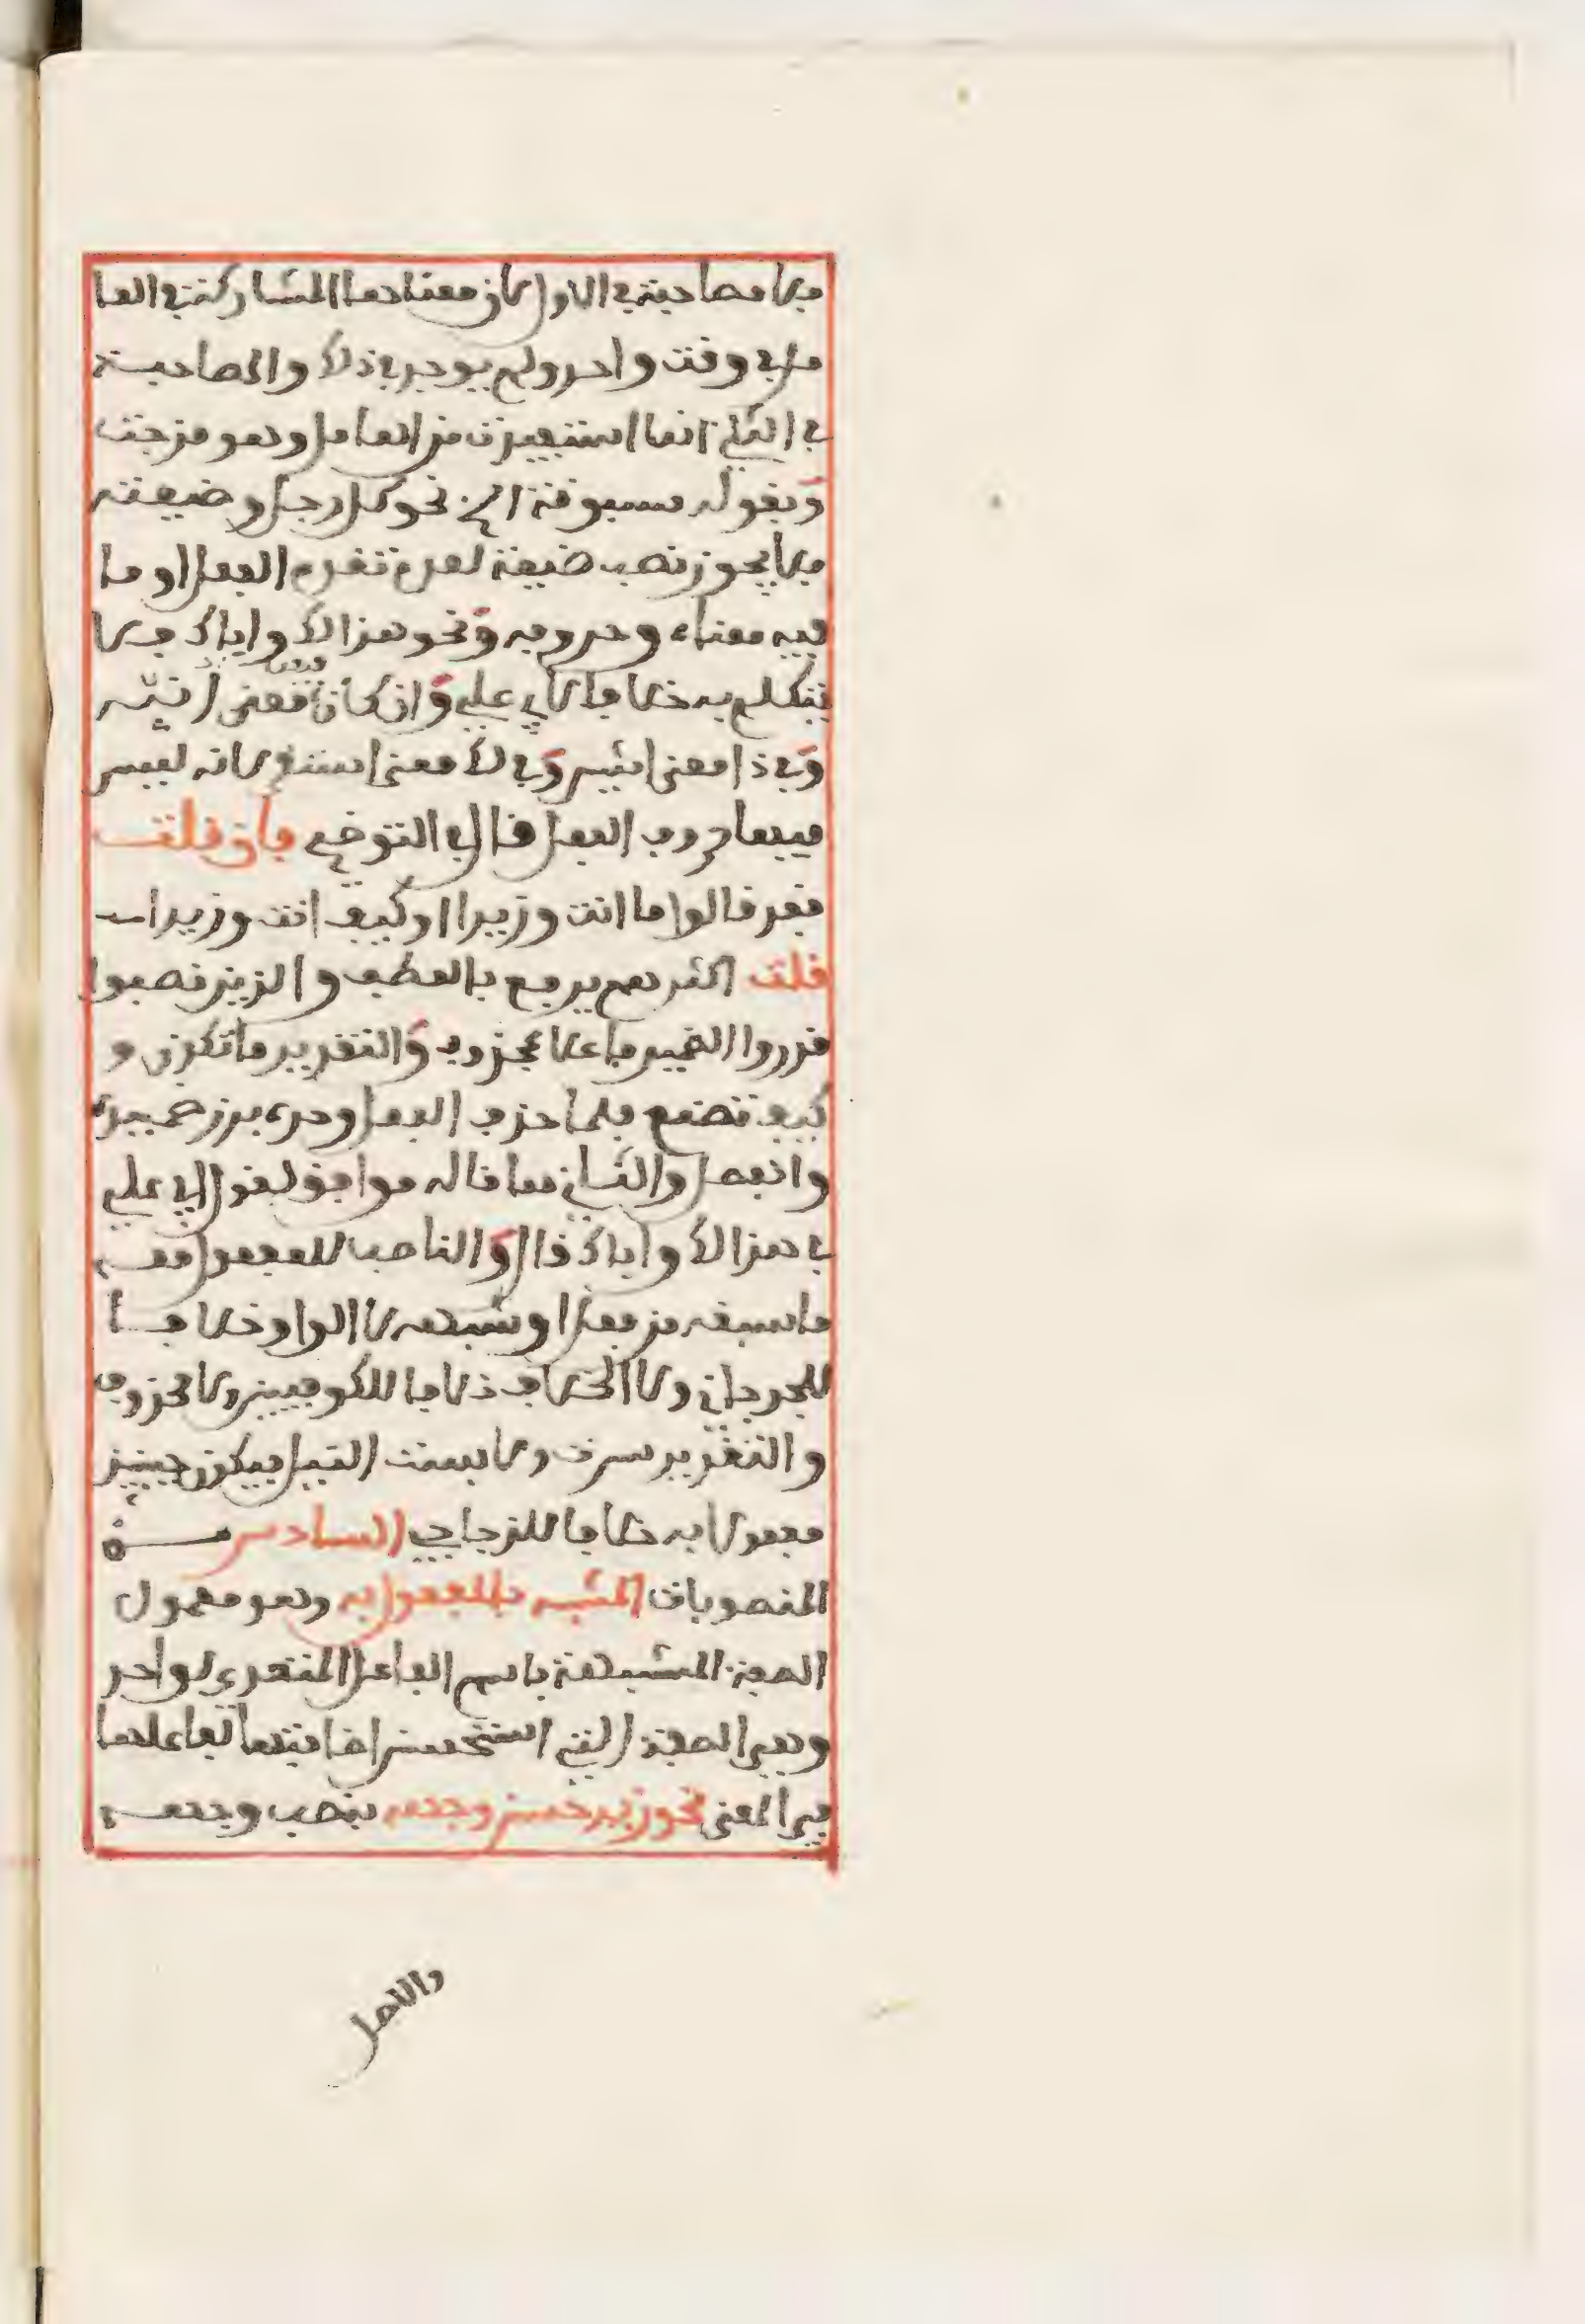 فلا مصاحبة في الاول لان معناها المشاركة في العا
مل في وقت واحد ولم يوجد في ذلك والمصاحبة
في الثاني انما استفيدت من العامل وهو مزجت
وبقوله مسبوقة الخ نحو كل رجل وضيعته
فلا يجوز نصب ضيعة لعدم تقدم الفعل او ما
فيه معناه وحروفه ونحو هذا لك واياك فلا
يتكلم به خلافا لابي علي وان كان معنى انبه
وفي ذا معنى اشير وفي لك معنى استقر لانه ليس
فيها حروف الفعل قال في التوضيح فان قلت
فقد قالوا ما انت وزيدا او كيف انت وزيدا
قلت اكثرهم يرفع بالعطف والذين نصبوا
قدروا الضمير فاعلا لمحذوف والتقدير ما تكون و
كيف تصنع فلما حذف الفعل وحده برز ضميره
وانفصل والثاني مما قاله موافق لقول ابي علي
في هذا لك واياك قال والناصب للمفعول معه
ما سبقه من فعل او شبهه لا الواو خلافا
للجرجاني ولا الخلاف خلافا للكوفيين ولا محذوف
والتقدير سرت ولابست النيل فيكون حينئذ
مفعولا به خلافا للزجاجي السادس من
المنصوبات المشبه بالمفعول به وهو معمول
الصفة المشبهة باسم الفاعل المتعدي لواحد
وهي الصفة التي استحسن اضافتها لفاعلها
في المعنى نحو زيد حسن وجهه بنصب وجهه
والاصل